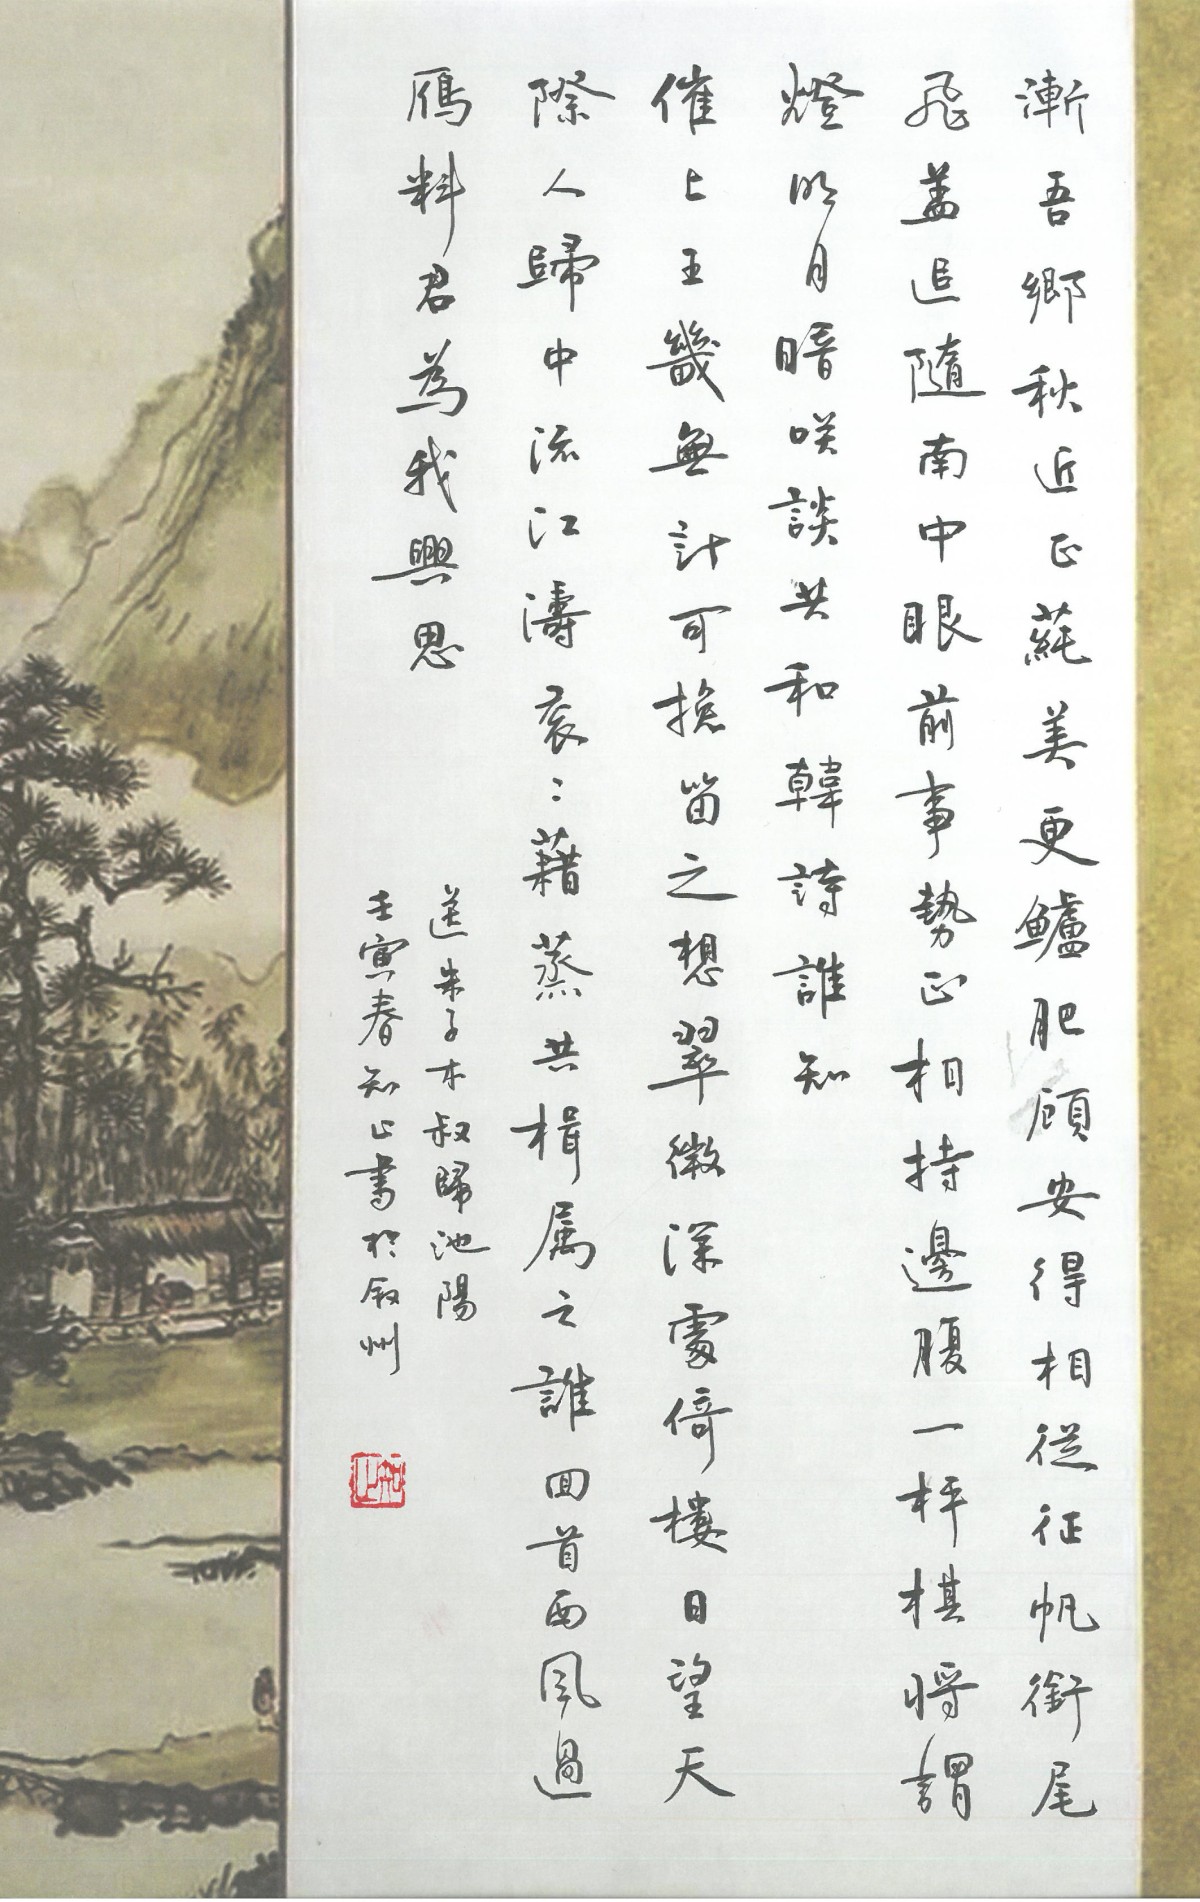 漸吾鄉秋近正蒓美更鱸肥顧安得相從征帆銜尾
飛蓋追隨南中眼前事勢正相持邊腹一枰棋將謂
燈明月暗咲談共和韓詩誰知
催上王畿無計可換留之想翠微深處倚樓日望天
際人歸中流江濤衮〻藉蒸共楫属之誰回首西風過
鴈料君為我興思
送朱子木叔歸池陽
壬寅春知止書於叙州
知止